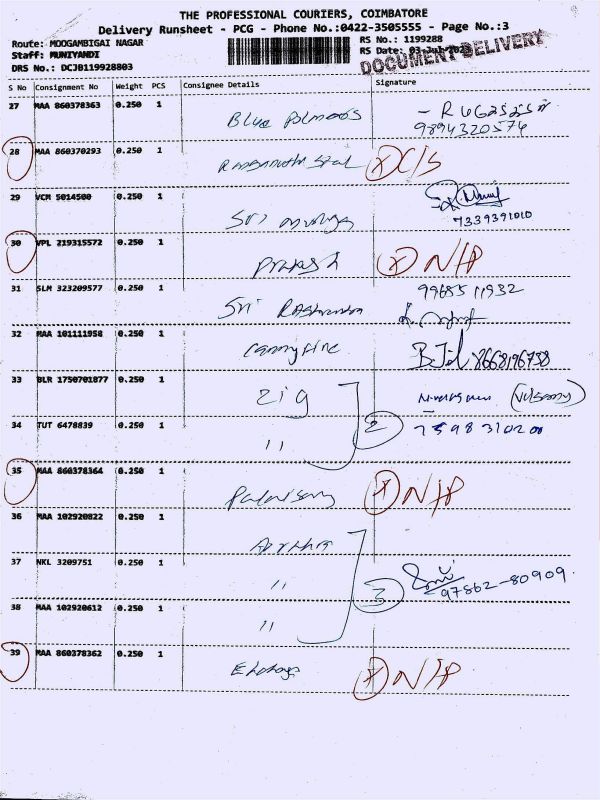 THE PROFESSIONAL COURIERS, COIMBATORE
Delivery Runsheet - PCG - Phone No.:0422-3505555 - Page No.:3
Route: MOOGAMBIGAI NAGAR
RS No.: 1199288
Staff: MUNIYANDI
RS Date: 03-Jul-2023
DOCUMENT DELIVERY
DRS No.: DCJB119928803
S No Consignment No Weight PCS Consignee Details Signature
27 MAA 860378363 0.250 1
9894320574
28 MAA 860370293 0.250 1 X C/S
29 VCM 5014500 0.250 1 Sri
7339391010
30 VPL 219315572 0.250 1 Prakash X N/P
31 SLM 323209577 0.250 1 Sri
32 MAA 101111958 0.250 1 8668196738
33 BLR 1750701877 0.250 1 Zig
34 TUT 6478839 0.250 1 " 2 7598310200
35 MAA 860378364 0.250 1 X N/P
36 MAA 102920822 0.250 1
37 NKL 3209751 0.250 1 " 3 97862-80909
38 MAA 102920612 0.250 1 "
39 MAA 860378362 0.250 1 X N/P